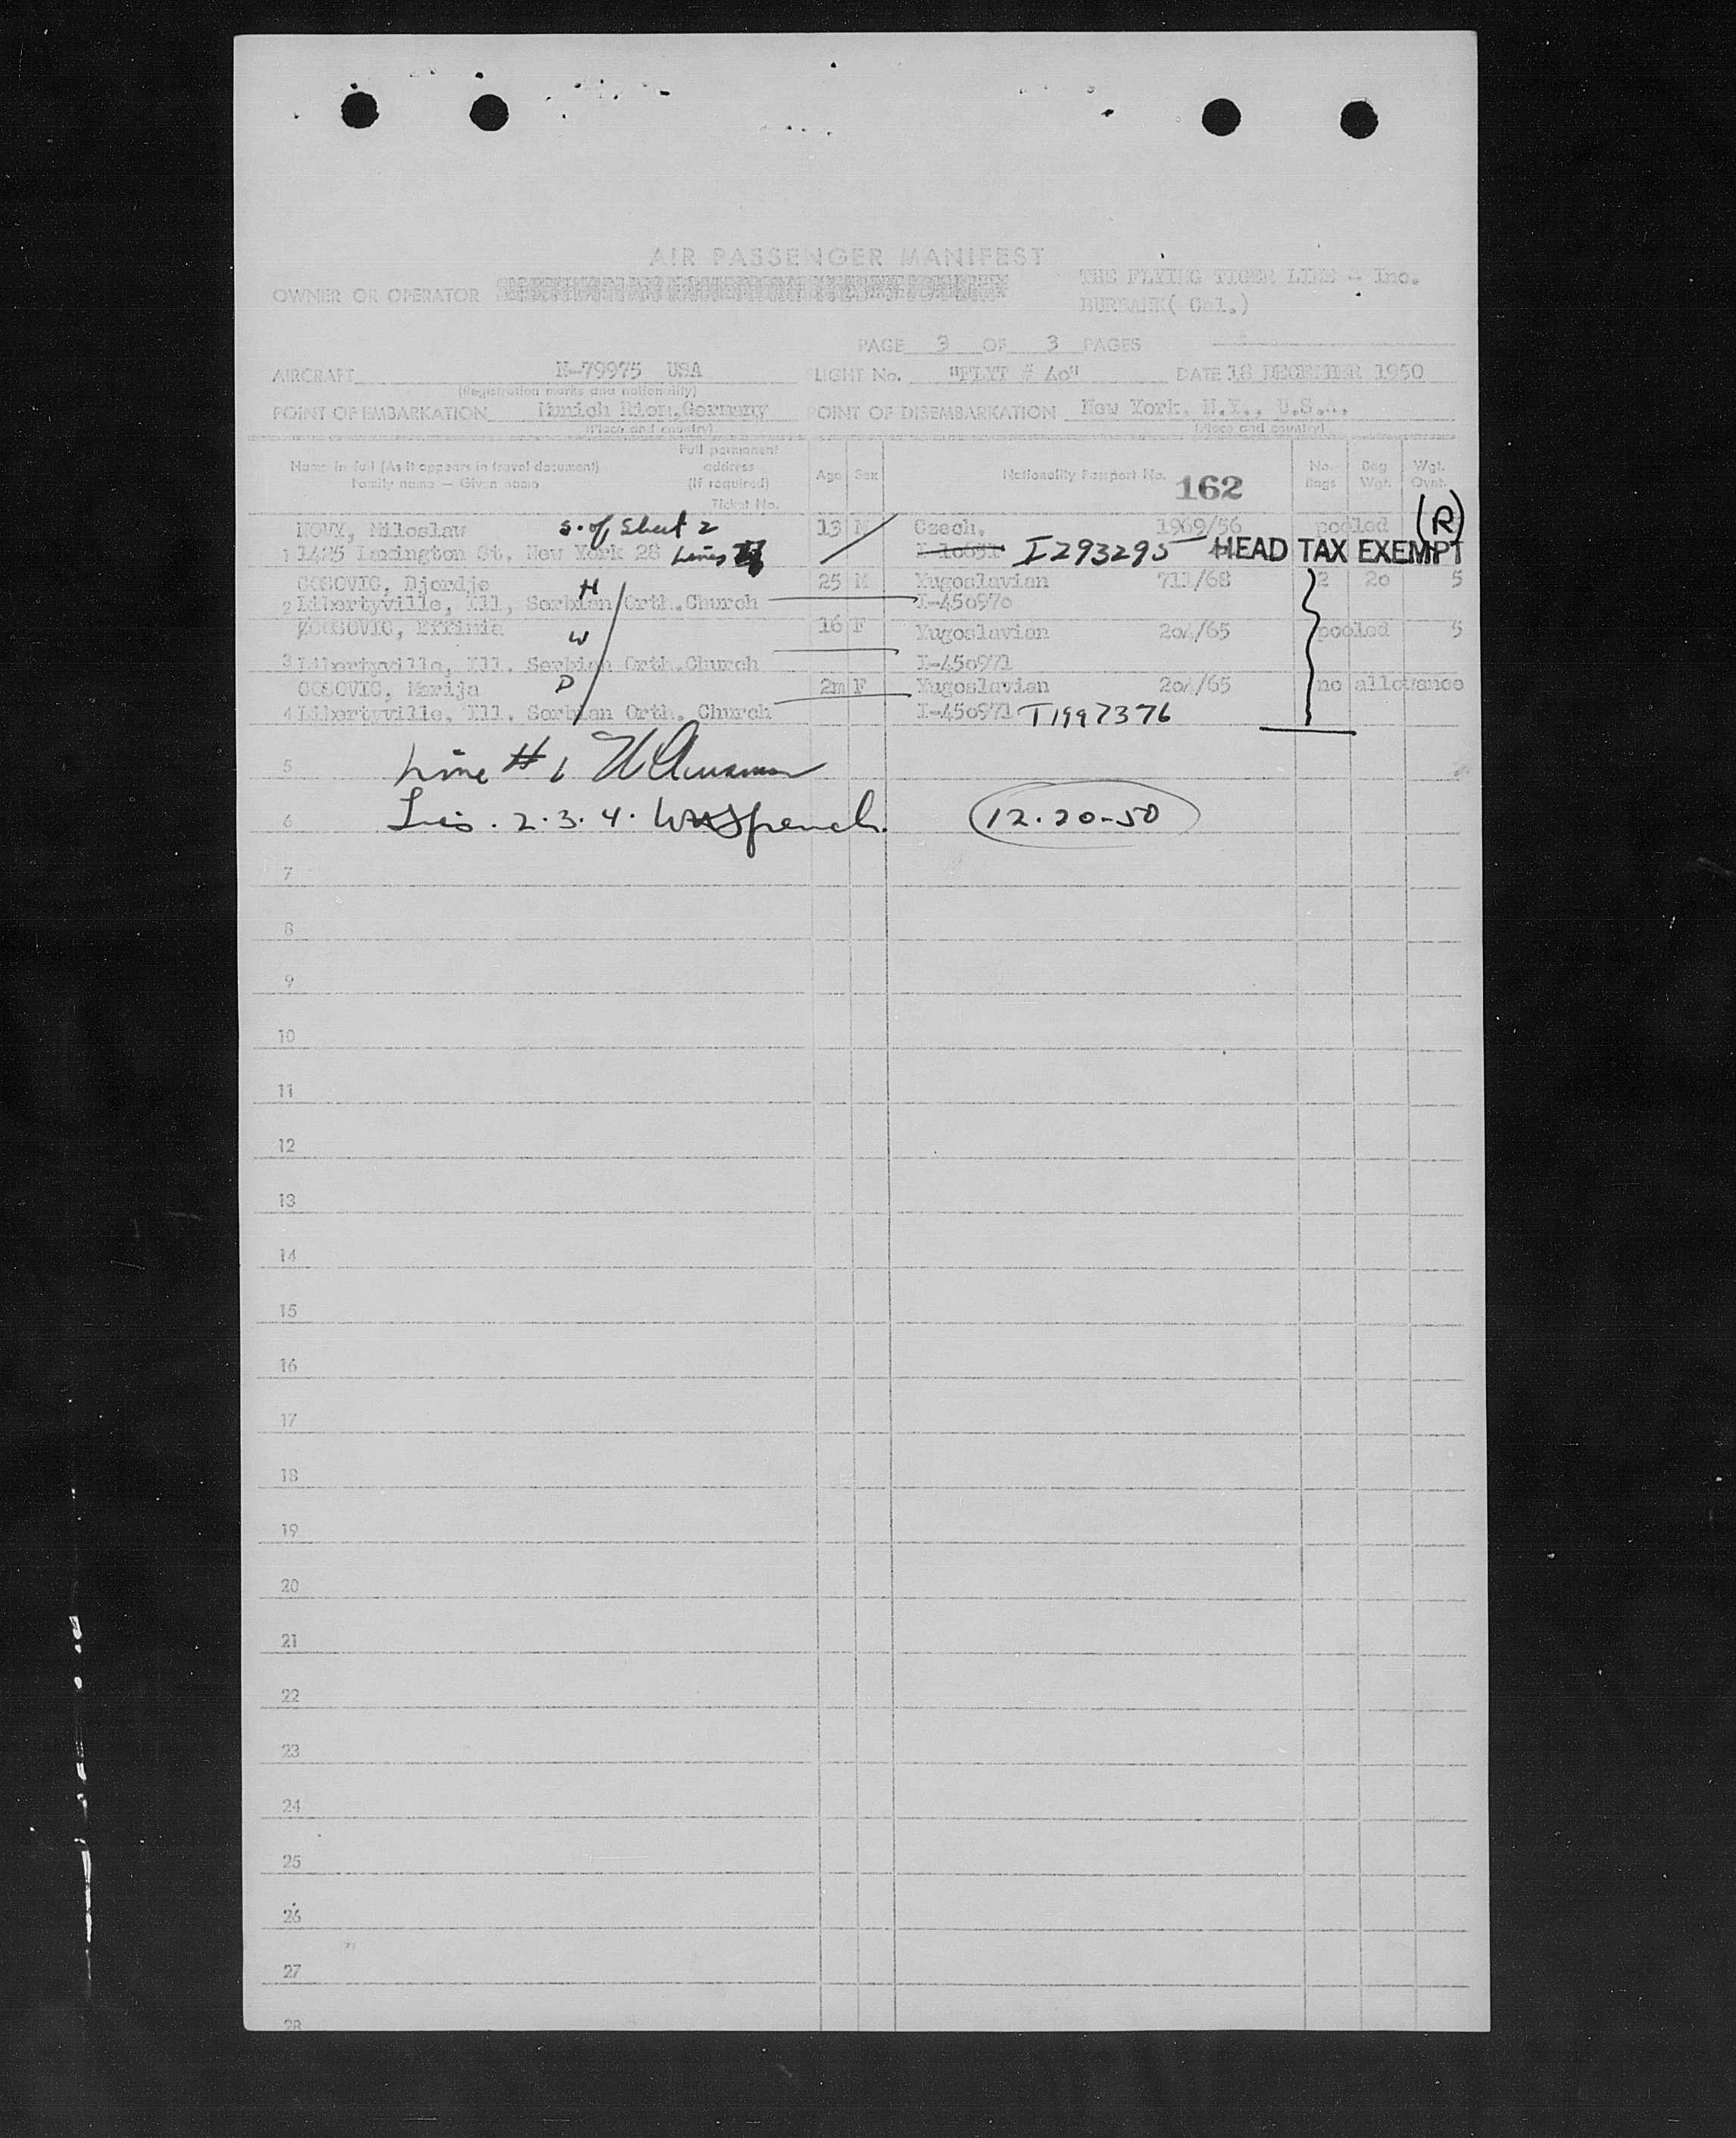 AIR PASSENGER MANIFEST
OWNER OR OPERATOR THE FLYING TIGER LINE - Inc.
BURBANK( Cal.)
PAGE 3 OF 3 PAGES
AIRCRAFT N-79975 USA FLIGHT No. "FLYT # 4o" DATE 18 DECEMBER 1950
(Registration marks and nationality)
POINT OF EMBARKATION Munich Riem, Germany POINT OF DISEMBARKATION New York, N.Y., U.S.A.
(Place and country) (Place and country)
Name in full (As it appears in travel document) Family name — Given name Full permanent address (If required) Ticket No. Age Sex Nationality Passport No. 162 No. Bags Bag Wgt. Wgt. Ovnt.
NOVY, Miloslaw s. of Sheet 2 13 M Czech. 1969/56 pooled (R)
1 1485 Lexington St. New York 28 Lines I293295 HEAD TAX EXEMPT
COSOVIC, Djordje H 25 M Yugoslavian 711/68 2 2o 5
2 Libertyville, Ill, Serbian Orth. Church I-45o97o
COSOVIC, W 16 F Yugoslavian 2o4/65 pooled 5
3 Libertyville, Ill. Serbian Orth. Church I-45o971
COSOVIC, Marija D 2m F Yugoslavian 2o4/65 no allowance
4 Libertyville, Ill. Serbian Orth. Church I-45o971 T1997376
5 Line # 1
6 Lines. 2. 3. 4. 12.20-50
7
8
9
10
11
12
13
14
15
16
17
18
19
20
21
22
23
24
25
26
27
28